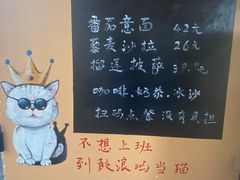 番茄意面 42元
藜麦沙拉 26元
榴莲披萨 39.9元
咖啡.奶茶.冰沙
扫码点餐 没有具担
不想上班
到鼓浪屿当猫